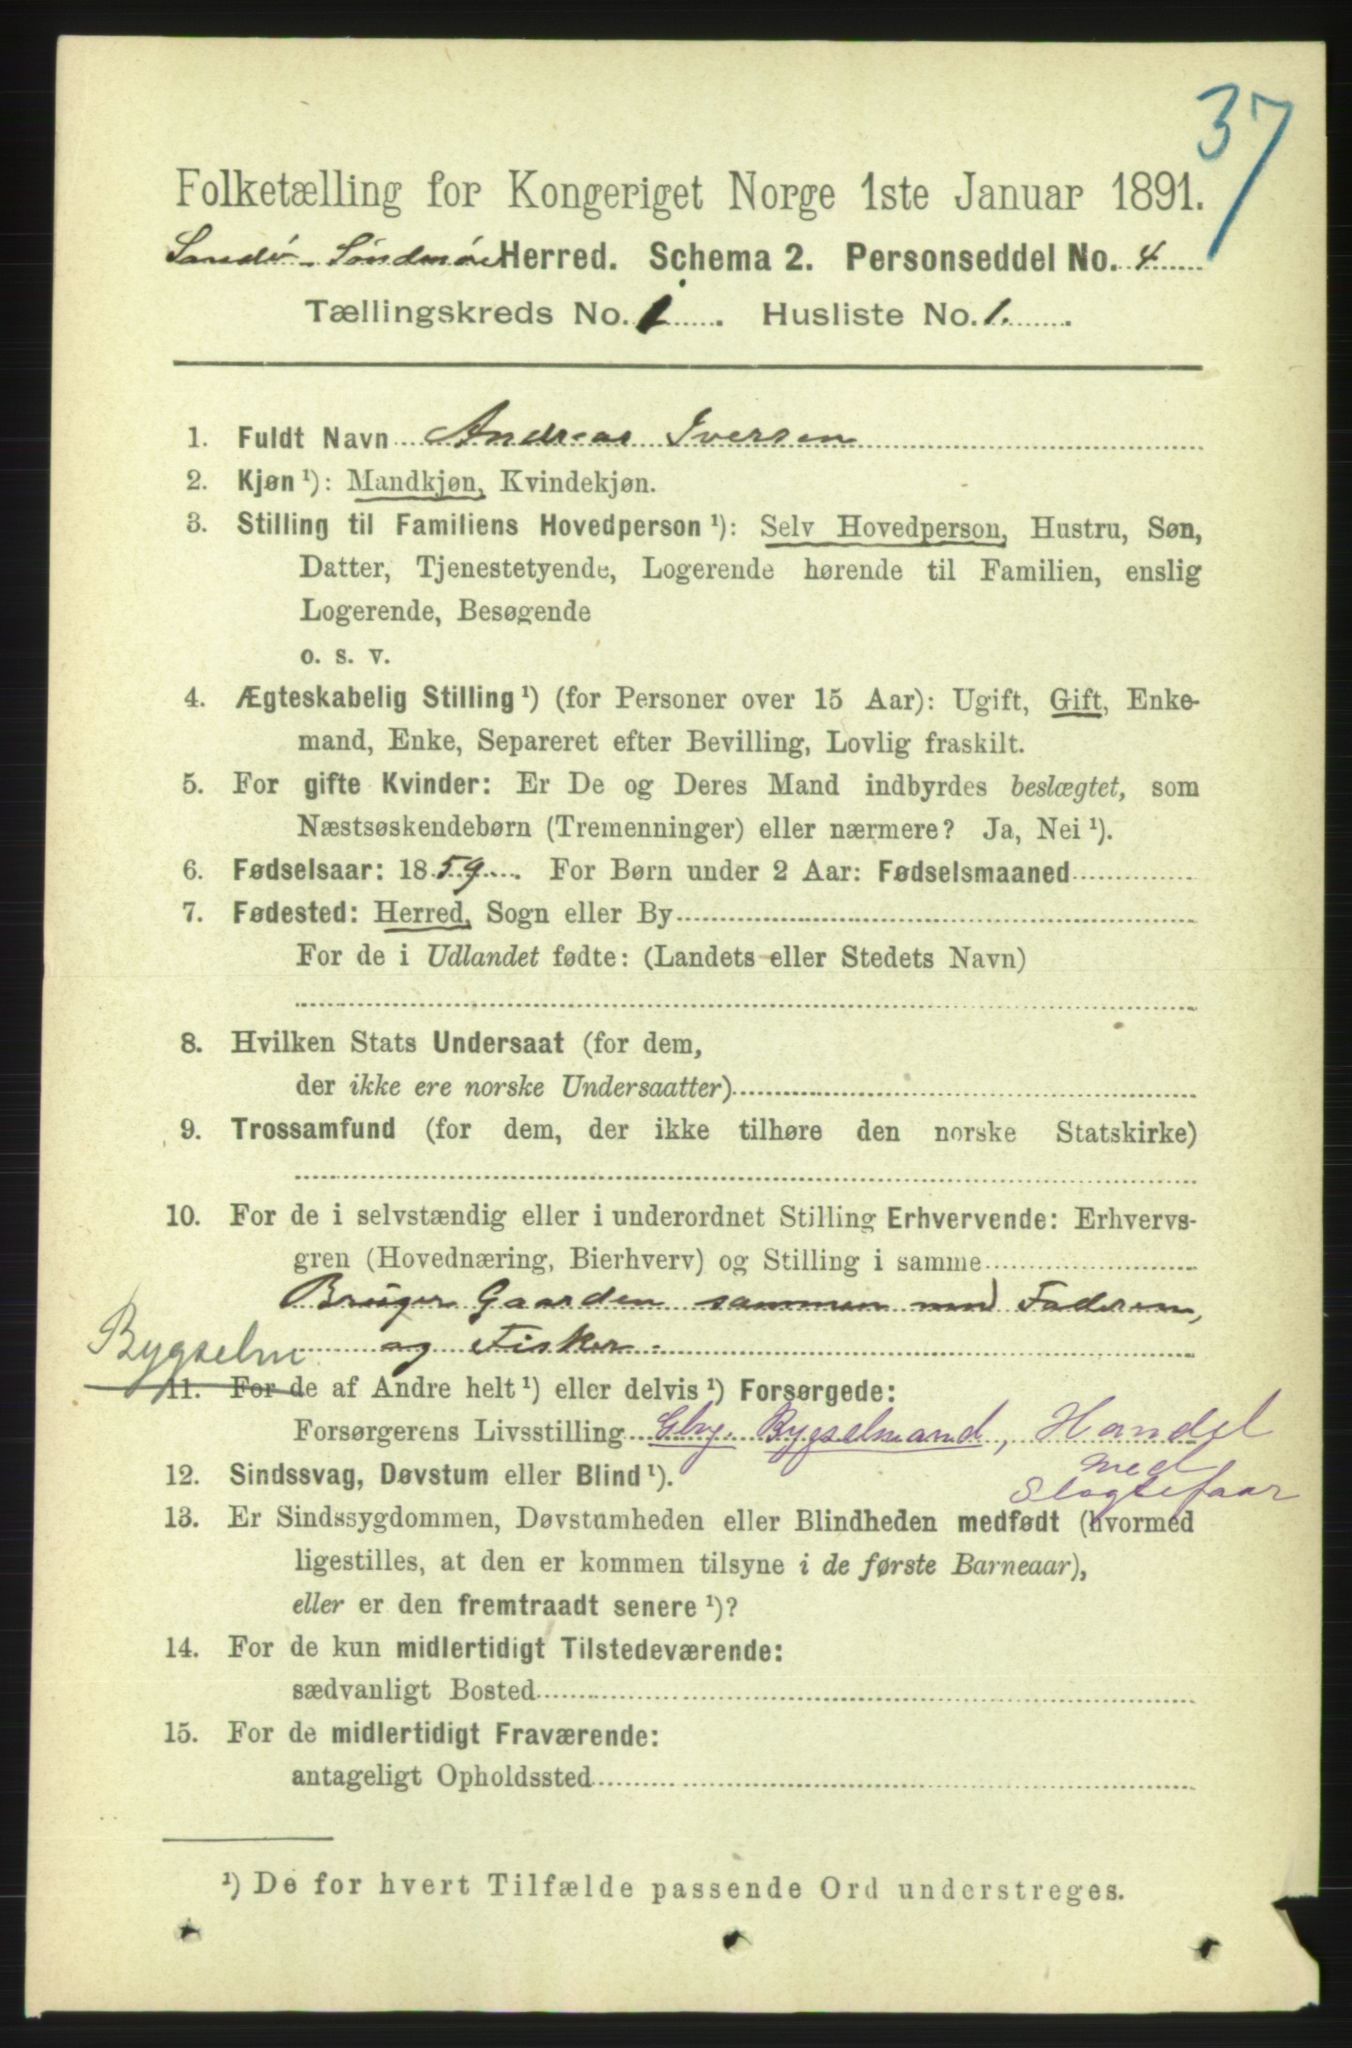 37
Folketælling for Kongeriget Norge 1ste Januar 1891.
Sandø - Søndmøre Herred. Schema 2. Personseddel No. 4
Tællingskreds No. 1. Husliste No. 1.
1. Fuldt Navn Andreas Iversen
2. Kjøn ¹): Mandkjøn, Kvindekjøn.
3. Stilling til Familiens Hovedperson ¹): Selv Hovedperson, Hustru, Søn,
Datter, Tjenestetyende, Logerende hørende til Familien, enslig
Logerende, Besøgende
o. s. v.
4. Ægteskabelig Stilling ¹) (for Personer over 15 Aar): Ugift, Gift, Enke-
mand, Enke, Separeret efter Bevilling, Lovlig fraskilt.
5. For gifte Kvinder: Er De og Deres Mand indbyrdes beslægtet, som
Næstsøskendebørn (Tremenninger) eller nærmere? Ja, Nei ¹).
6. Fødselsaar: 1859. For Børn under 2 Aar: Fødselsmaaned
7. Fødested: Herred, Sogn eller By
For de i Udlandet fødte: (Landets eller Stedets Navn)
8. Hvilken Stats Undersaat (for dem,
der ikke ere norske Undersaatter)
9. Trossamfund (for dem, der ikke tilhøre den norske Statskirke)
10. For de i selvstændig eller i underordnet Stilling Erhvervende: Erhvervs-
gren (Hovednæring, Bierhverv) og Stilling i samme
Bruger Gaarden sammen med Faderen,
Bygselm og Fisker.
11. For de af Andre helt ¹) eller delvis ¹) Forsørgede:
Forsørgerens Livsstilling Gbr. Bygselmand, Handel
med
Slagtefaar
12. Sindssvag, Døvstum eller Blind ¹).
13. Er Sindssygdommen, Døvstumheden eller Blindheden medfødt (hvormed
ligestilles, at den er kommen tilsyne i de første Barneaar),
eller er den fremtraadt senere ¹)?
14. For de kun midlertidigt Tilstedeværende:
sædvanligt Bosted
15. For de midlertidigt Fraværende:
antageligt Opholdssted
¹) De for hvert Tilfælde passende Ord understreges.